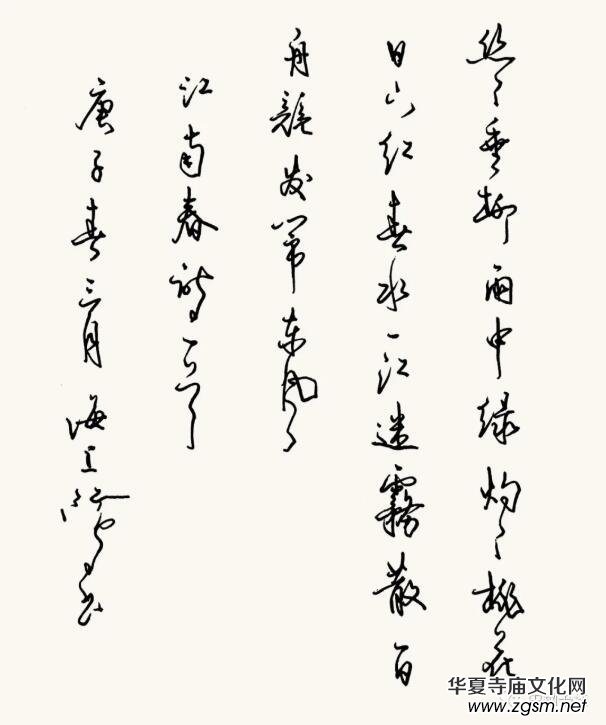 丝丝垂柳雨中绿灼灼桃花
日下红春水一江迷雾散百
舟竞发带东风
江南春诗一首
庚子春三月海上书
华夏寺庙文化网
www.zgsm.net